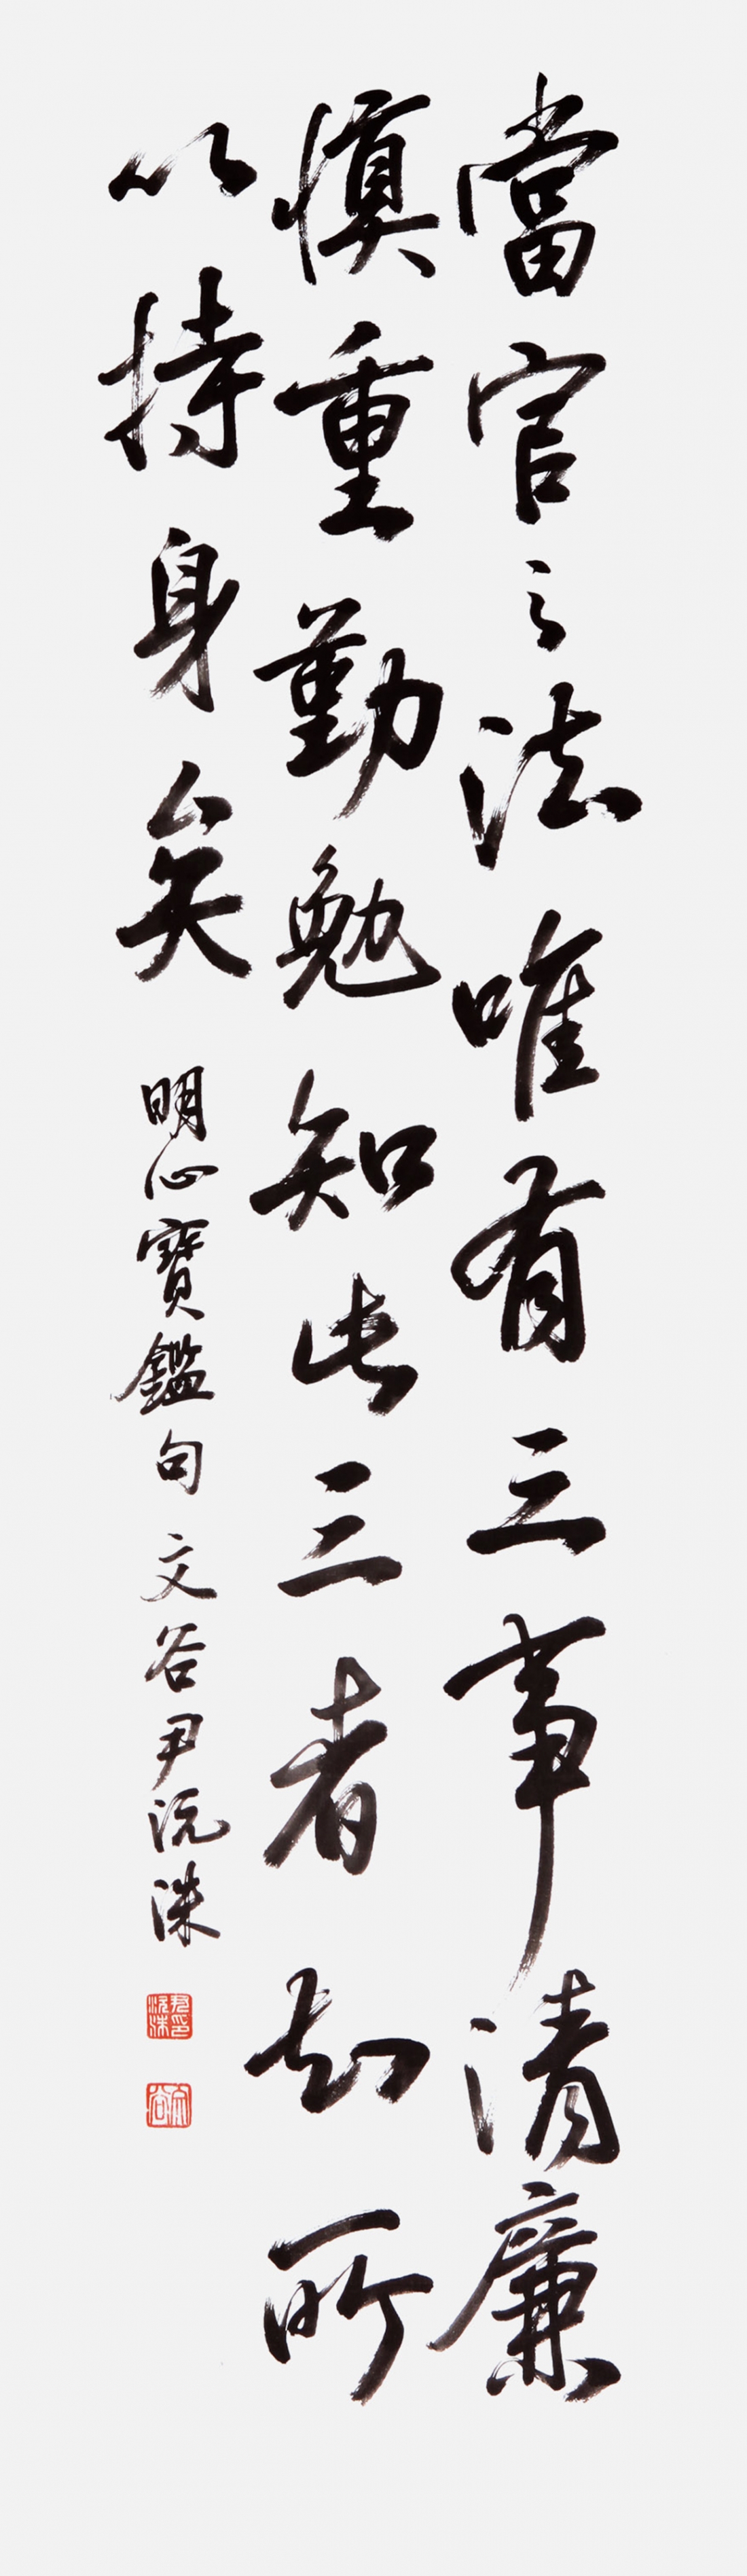 當官之法唯有三事清廉
慎重勤勉知此三者知所
以持身矣
明心寶鑑句 文谷尹沅洙